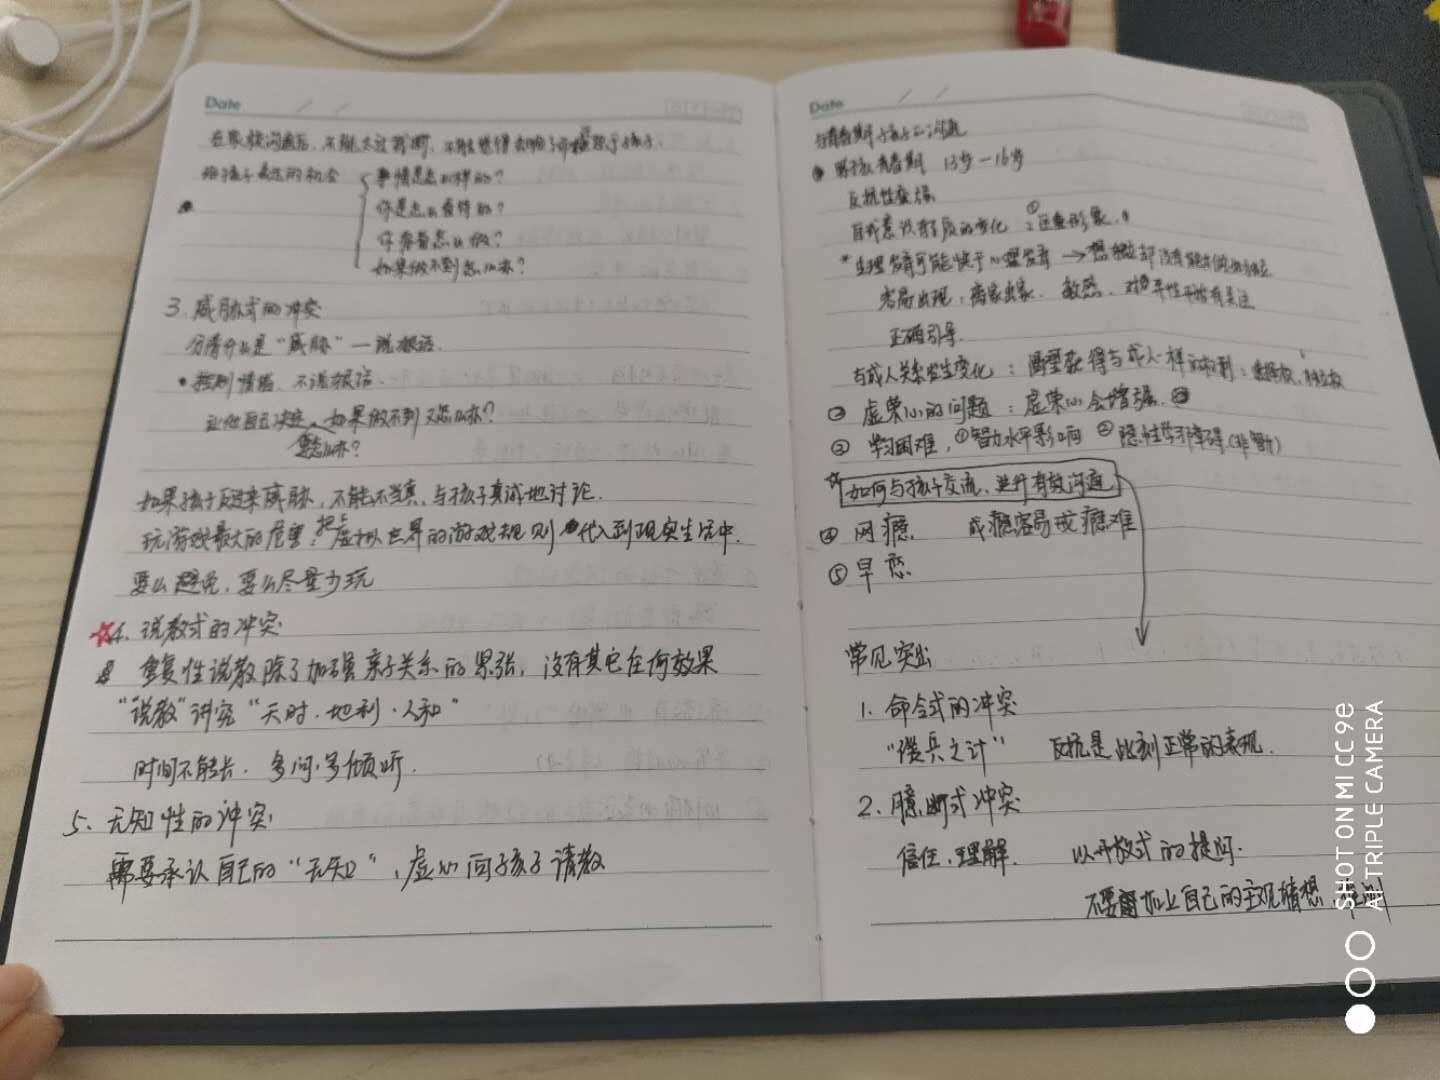 Date
给孩子表达的机会
事情是怎么样的?
你是怎么看待的?
你准备怎么做?
如果做不到怎么办?
3. 威胁式的冲突
分清什么是“威胁”—说狠话.
• 控制情绪、不说狠话.
让他自己决定, 如果做不到又怎么办?
要怎么办?
如果孩子反过来威胁, 不能不当真、与孩子真诚地讨论.
玩游戏最大的危害:把虚拟世界的游戏规则代入到现实生活中.
要么避免, 要么尽量少玩
☆4. 说教式的冲突
重复性说教除了加强亲子关系的紧张, 没有其它任何效果
“说教”讲究“天时.地利.人和”
时间不能长. 多问.多倾听.
5. 无知性的冲突
需要承认自己的“无知”,虚心向孩子请教
Date
与青春期孩子的沟通
男孩青春期 13岁—16岁
反抗性变强
自我意识有质的变化
* 生理发育可能快于心理发育 →
容易出现:离家出家. 敏感. 对异性开始有关注
正确引导.
与成人关系发生变化:渴望获得与成人一样的权利:
② 虚荣心的问题:虚荣心会增强.
③ 学习困难. ①智力水平影响 ②隐性学习障碍(非智力)
☆如何与孩子交流, 进行有效沟通
④ 网瘾 成瘾容易戒瘾难
⑤ 早恋
常见突出
1. 命令式的冲突
“缓兵之计” 反抗是此刻正常的表现.
2. 臆断式冲突
信任, 理解. 以开放式的提问.
不要加上自己的主观猜想,推测
SHOT ON MI CC 9e
AI TRIPLE CAMERA